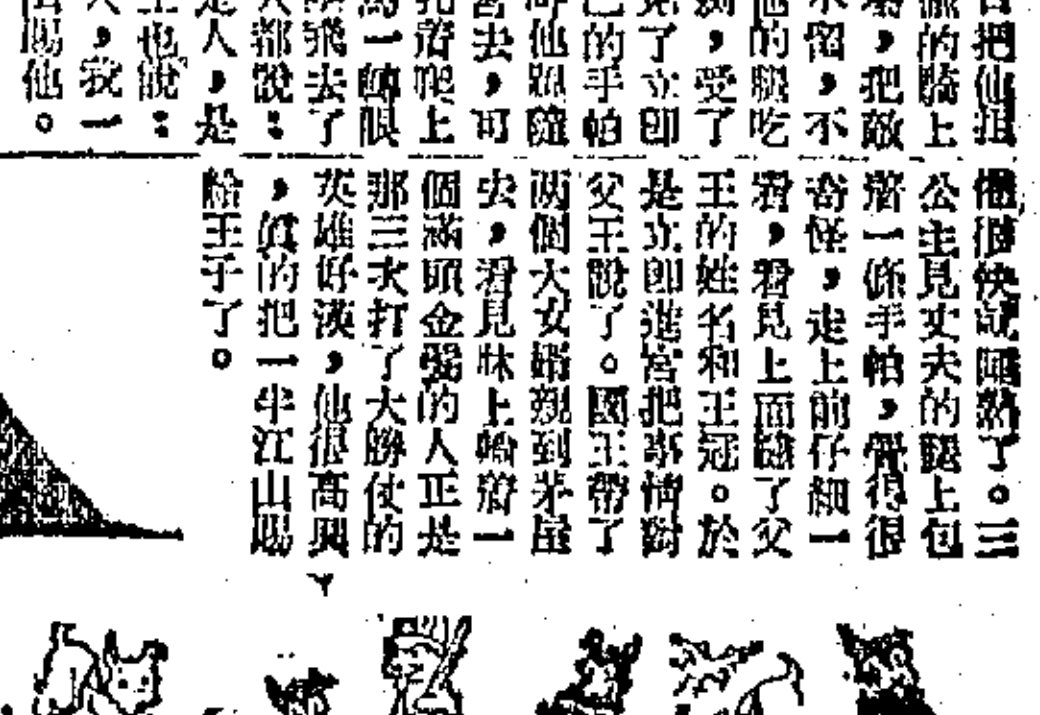 把仙狙
的騎上
，把敵
留，不
的腿吃
，受了
了立卽
的手帕
他跟隨
去，可
着爬上
一轉眼
飛去了
都說：
人，是
也說：
，我一
賜他。
他很快就睡熟了。三
公主見丈夫的腿上包
着一條手帕，覺得很
奇怪，走上前仔細一
看，看見上面繡了父
王的姓名和王冠。於
是立卽進宮把事情對
父王說了。國王帶了
两個大女婿親到茅屋
去，看見牀上躺着一
個滿頭金髮的人正是
那三次打了大勝仗的
英雄好漢，他很高興
，眞的把一半江山賜
給王子了。